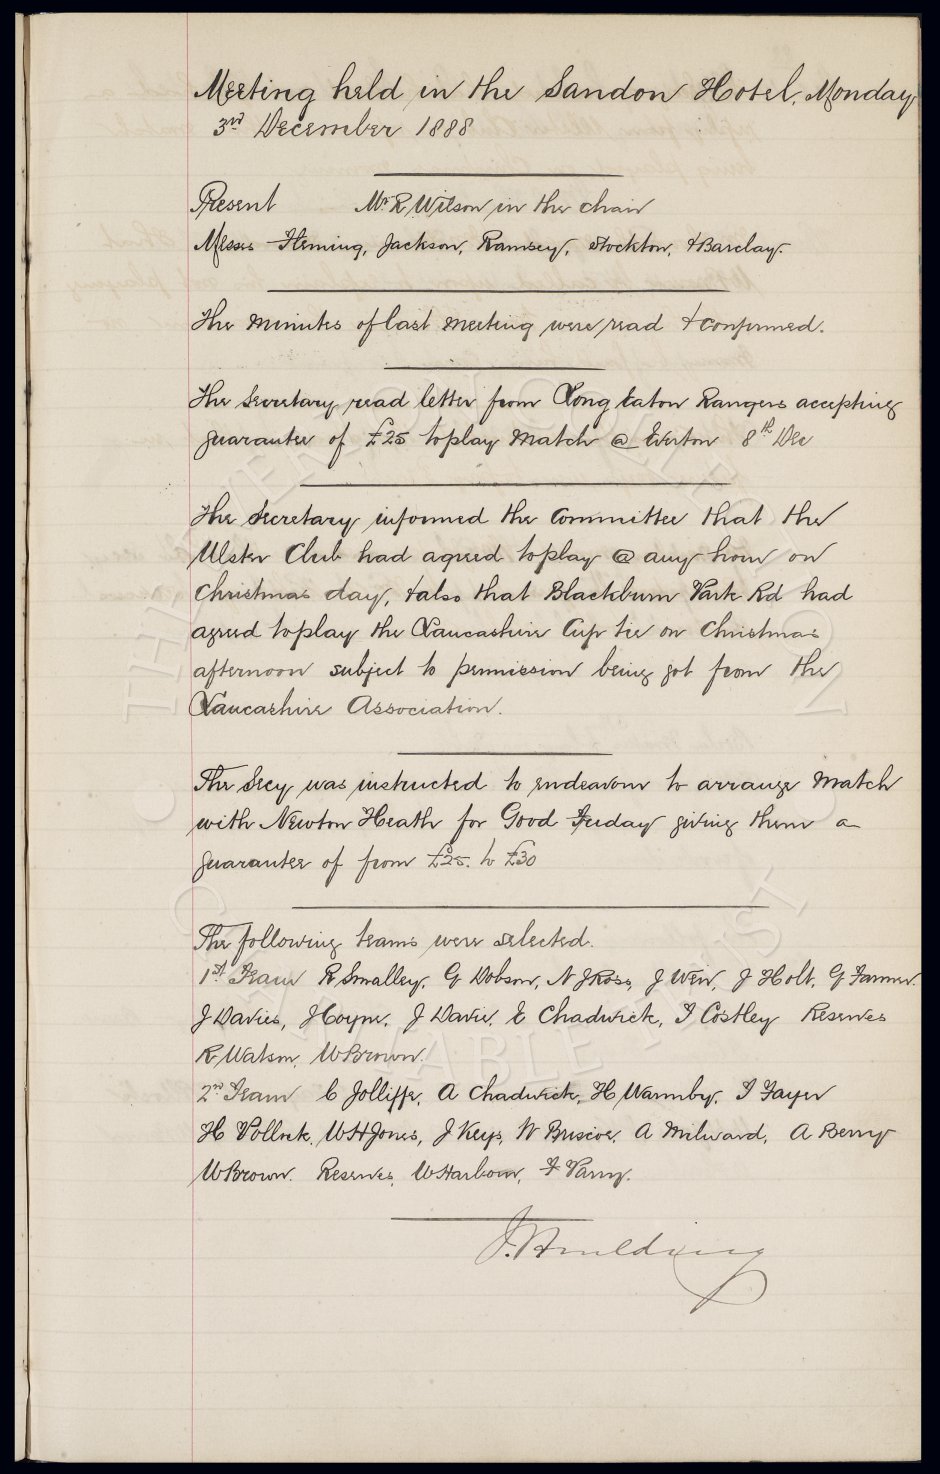 Meeting held in the Sandon Hotel, Monday
3rd December 1888
Present Mr R Wilson in the chair
Messrs Fleming, Jackson, Ramsey, Stockton, & Barclay.
The minutes of last meeting were read & confirmed.
The Secretary read letter from Long Eaton Rangers accepting
guarantee of £25 to play match @ Everton 8th Dec
The Secretary informed the Committee that the
Ulster Club had agreed to play @ any hour on
Christmas day, & also that Blackburn Park Rd had
agreed to play the Lancashire Cup tie on Christmas
afternoon subject to permission being got from the
Lancashire Association.
The Secy was instructed to endeavour to arrange match
with Newton Heath for Good Friday giving them a
guarantee of from £25. to £30
The following teams were selected.
1st Team R Smalley, G Dobson, N J Ross, J Weir, J Holt, G Farmer.
J Davies, J Coyne, J Davie, E Chadwick, T Costley Reserves
R Watson, W Brown.
2nd Team C Jolliffe, A Chadwick, H Warmby, T Fayer
H Pollock, W H Jones, J Keys, W Briscoe, A Milward, A Berry
W Brown. Reserves, W Harbour, F Parry.
THE EVERTON COLLECTION CHARITABLE TRUST